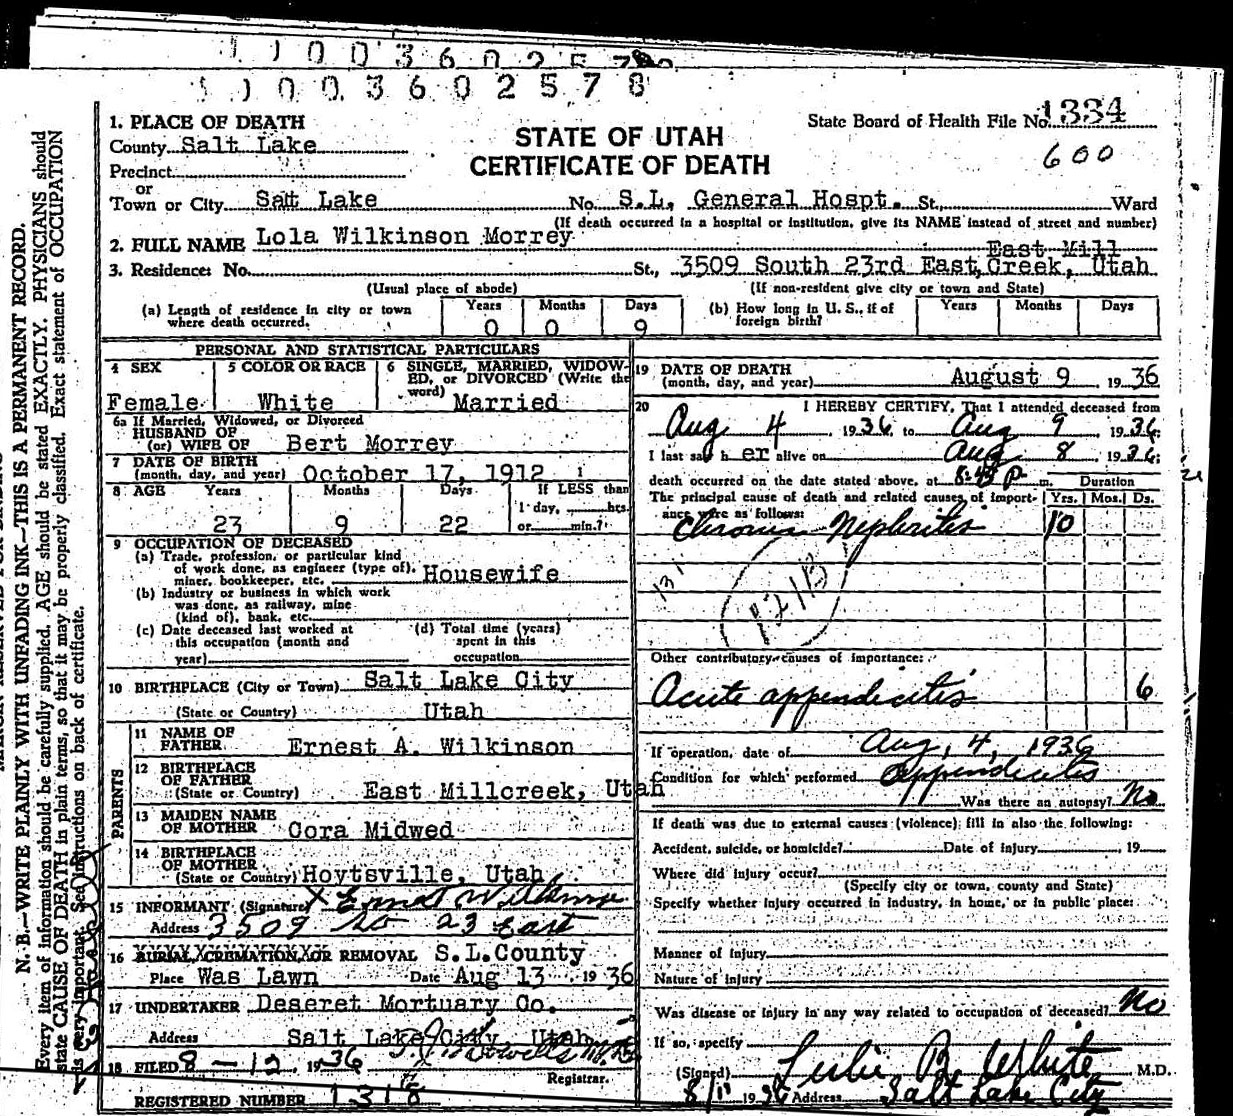 1003602578
1. PLACE OF DEATH
County Salt Lake
Precinct
or
Town or City Salt Lake No. S.L. General Hospt. St., Ward
STATE OF UTAH
CERTIFICATE OF DEATH
State Board of Health File No. 1334
600
(If death occurred in a hospital or institution, give its NAME instead of street and number)
2. FULL NAME Lola Wilkinson Morrey
East Mill
3. Residence: No. St., 3509 South 23rd East, Creek, Utah
(Usual place of abode) (If non-resident give city or town and State)
(a) Length of residence in city or town where death occurred. Years 0 Months 0 Days 9
(b) How long in U. S., if of foreign birth? Years Months Days
PERSONAL AND STATISTICAL PARTICULARS
4 SEX Female
5 COLOR OR RACE White
6 SINGLE, MARRIED, WIDOWED, or DIVORCED (Write the word) Married
6a If Married, Widowed, or Divorced
HUSBAND OF
(or) WIFE OF Bert Morrey
7 DATE OF BIRTH
(month, day, and year) October 17, 1912
8 AGE Years 23 Months 9 Days 22 If LESS than 1 day, hrs. or min.?
9 OCCUPATION OF DECEASED
(a) Trade, profession, or particular kind
of work done, as engineer (type of),
miner, bookkeeper, etc. Housewife
(b) Industry or business in which work
was done, as railway, mine
(kind of), bank, etc.
(c) Date deceased last worked at
this occupation (month and
year)
(d) Total time (years)
spent in this
occupation
10 BIRTHPLACE (City or Town) Salt Lake City
(State or Country) Utah
PARENTS
11 NAME OF
FATHER Ernest A. Wilkinson
12 BIRTHPLACE
OF FATHER
(State or Country) East Millcreek, Utah
13 MAIDEN NAME
OF MOTHER Cora Midwed
14 BIRTHPLACE
OF MOTHER
(State or Country) Hoytsville, Utah
15 INFORMANT (Signature) X Ernest Wilkinson
Address 3509 So 23 East
16 BURIAL, CREMATION, OR REMOVAL S.L. County
Place Was Lawn Date Aug 13 1936
17 UNDERTAKER Deseret Mortuary Co.
Address Salt Lake City Utah
18 FILED 8-12, 1936
Registrar.
REGISTERED NUMBER 1318
19 DATE OF DEATH
(month, day, and year) August 9, 1936
20 I HEREBY CERTIFY, That I attended deceased from
Aug 4, 1936, to Aug 9, 1936;
I last saw h er alive on Aug 8, 1936;
death occurred on the date stated above, at 8:45 P m.
Duration
The principal cause of death and related causes of importance were as follows: Yrs. Mos. Ds.
Chronic Nephritis 10
131
Other contributory causes of importance:
Acute appendicitis 6
If operation, date of Aug, 4, 1936
Condition for which performed Appendicitis
Was there an autopsy? No
If death was due to external causes (violence) fill in also the following:
Accident, suicide, or homicide? Date of injury 19
Where did injury occur?
(Specify city or town, county and State)
Specify whether injury occurred in industry, in home, or in public place:
Manner of injury
Nature of injury
Was disease or injury in any way related to occupation of deceased? No
If so, specify
(Signed) Leslie B White M.D.
8/11 1936 Address Salt Lake City
N. B.—WRITE PLAINLY WITH UNFADING INK—THIS IS A PERMANENT RECORD.
Every item of information should be carefully supplied. AGE should be stated EXACTLY. PHYSICIANS should
state CAUSE OF DEATH in plain terms, so that it may be properly classified. Exact statement of OCCUPATION
is very important. See instructions on back of certificate.